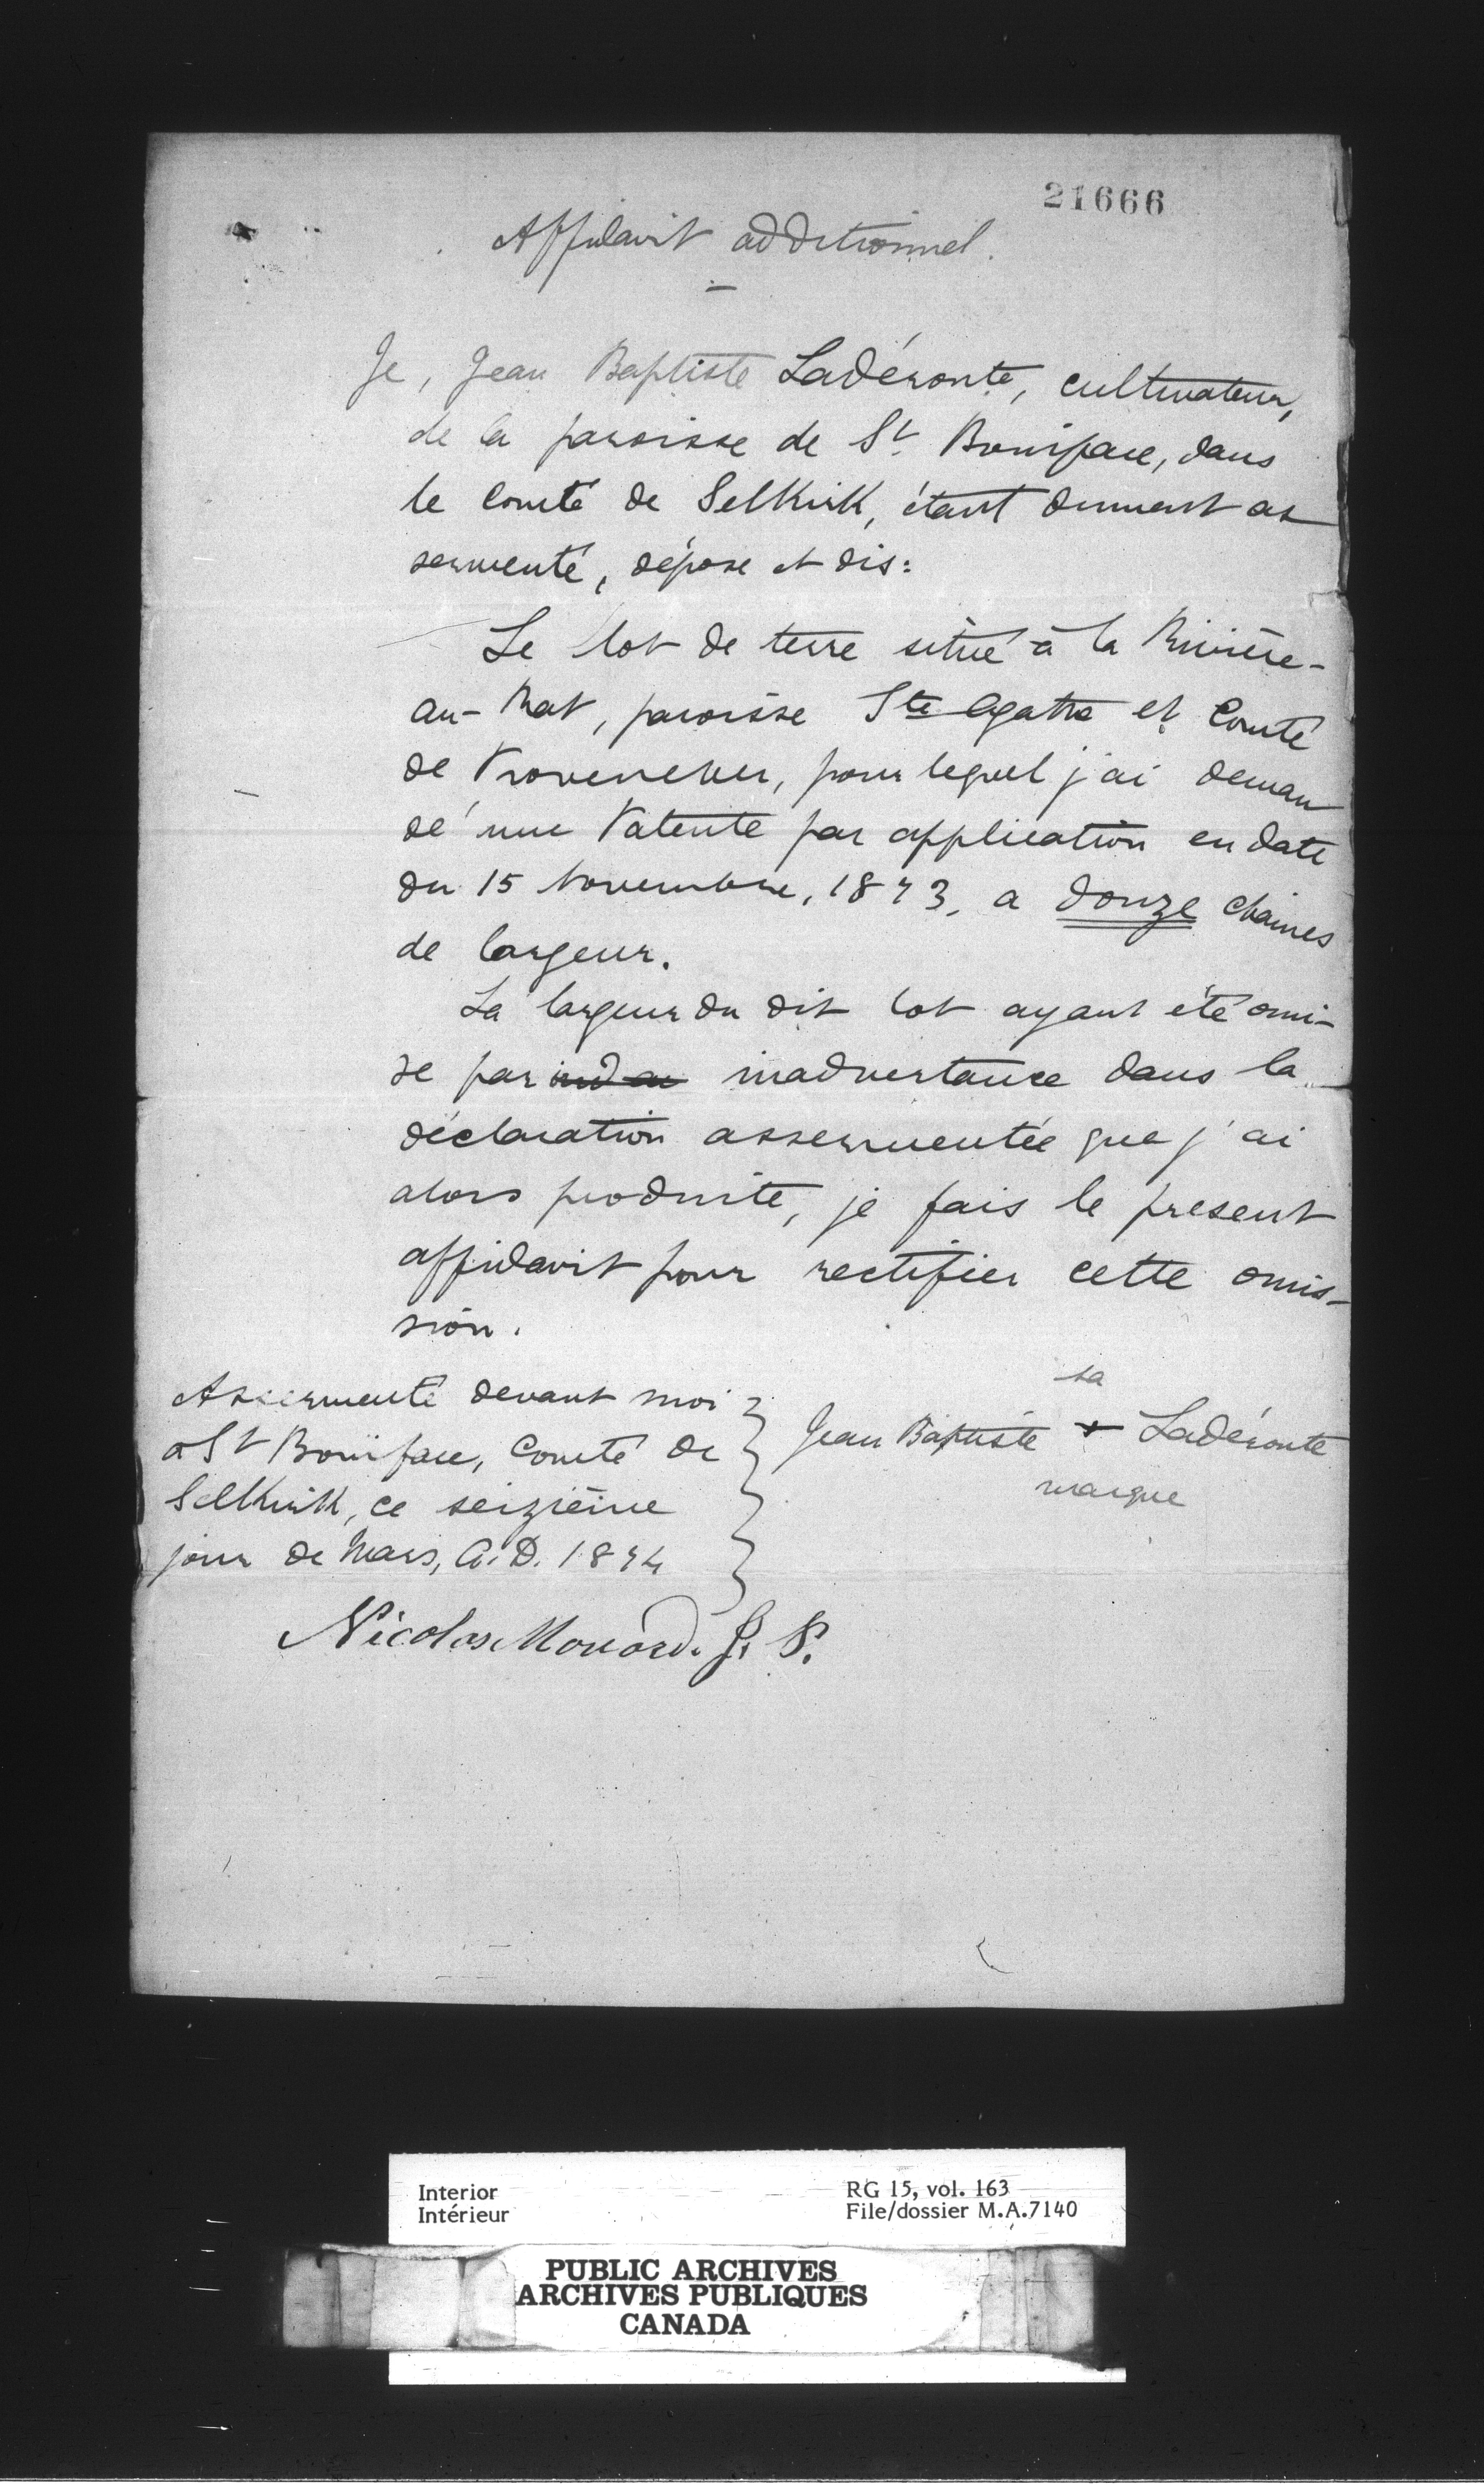 21666
Affidavit additionnel.
Je, Jean Baptiste Ladéronte, cultivateur,
de la paroisse de St. Boniface, dans
le Comté de Selkirk, étant dument as
sermenté, dépose et dis:
Le lot de terre situé à la Rivière-
au-Rat, paroisse Ste Agathe et Comté
de Provencher, pour lequel j'ai deman
dé une Patente par application en date
du 15 Novembre, 1873, a douze chaines
de largeur.
La largeur du dit lot ayant été omi-
se par inadvertance dans la
déclaration assermentée que j'ai
alors produite, je fais le present
affidavit pour rectifier cette omis-
sion.
Assermenté devant moi
a St Boniface, Comté de
Selkirk, ce seizième
jour de Mars, A.D. 1874
sa
Jean Baptiste + Ladéronte
marque
Nicolas Mouard. J. P.
Interior
Intérieur
RG 15, vol. 163
File/dossier M.A.7140
PUBLIC ARCHIVES
ARCHIVES PUBLIQUES
CANADA